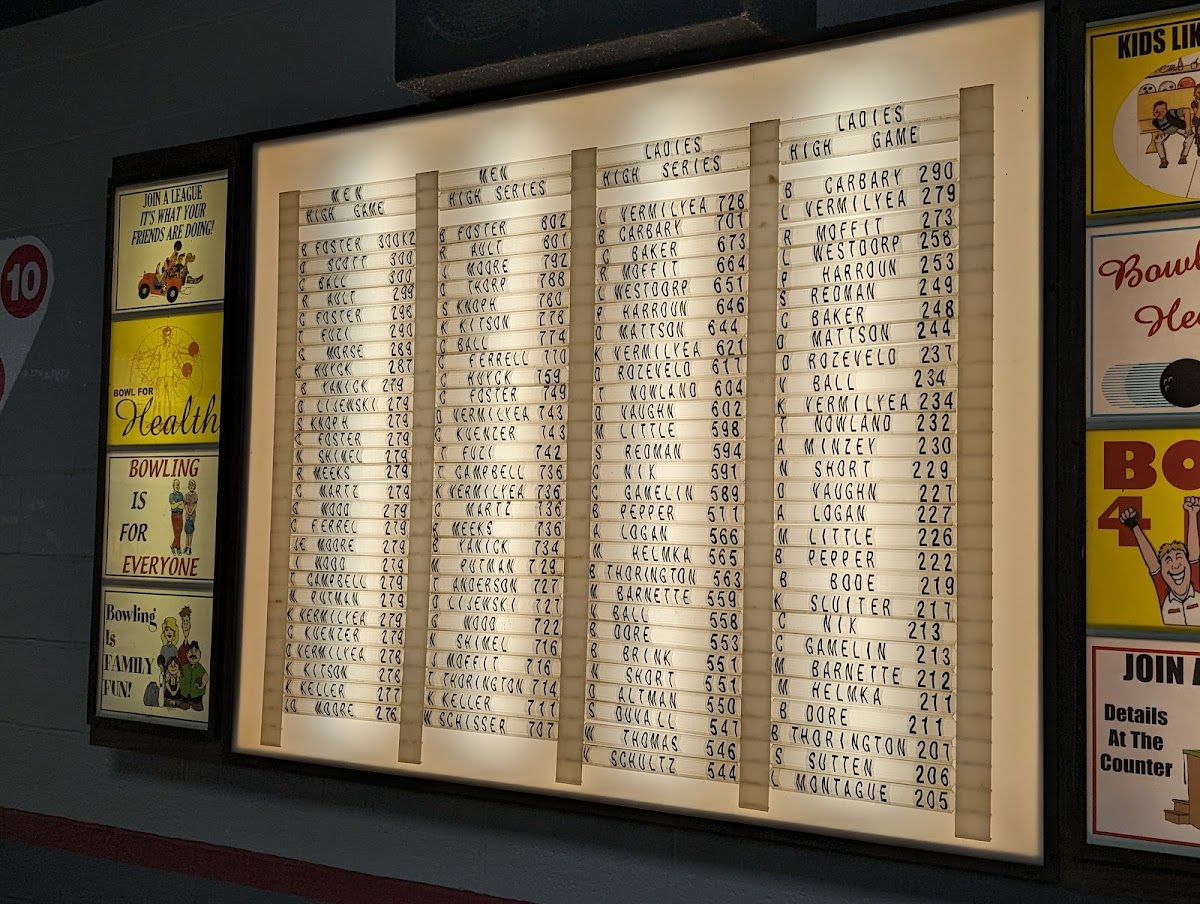 10
JOIN A LEAGUE
IT'S WHAT YOUR
FRIENDS ARE DOING!
BOWL FOR
Health
BOWLING
IS
FOR
EVERYONE
Bowling
Is
FAMILY
FUN!
MEN
HIGH GAME
FOSTER 300X2
SCOTT 300
BALL 300
AULT 299
FOSTER 298
FUZI 290
MORSE 289
HUYCK 287
YANICK 279
LIJEWSKI 279
KNOPH 279
FOSTER 279
SHIMEL 279
MEEKS 279
MARTZ 279
WOOD 279
FERREL 279
MOORE 279
WOOD 279
CAMPBELL 279
PUTMAN 279
VERMILYEA 279
KUENZER 279
VERMILYEA 279
KITSON 278
KELLER 277
MOORE 276
MEN
HIGH SERIES
FOSTER 802
AULT 801
MOORE 792
THORP 788
KNOPH 780
KITSON 778
BALL 774
FERRELL 770
HUYCK 759
FOSTER 749
VERMILYEA 743
KUENZER 743
FUZI 742
T CAMPBELL 736
K VERMILYEA 736
MARTZ 736
MEEKS 736
YANICK 734
PUTMAN 729
T ANDERSON 727
LIJEWSKI 727
WOOD 722
K SHIMEL 716
J MOFFIT 716
T THORINGTON 714
K KELLER 711
SCHISSER 707
LADIES
HIGH SERIES
L VERMILYEA 728
B CARBARY 701
BAKER 673
R MOFFIT 664
L WESTDORP 651
P HARROUN 646
D MATTSON 644
K VERMILYEA 621
D ROZEVELD 617
T NOWLAND 604
D VAUGHN 602
M LITTLE 598
S REDMAN 594
C NIK 591
GAMELIN 589
B PEPPER 577
A LOGAN 566
M HELMKA 565
B THORINGTON 563
M BARNETTE 559
BALL 558
B DORE 553
BRINK 551
N SHORT 551
ALTMAN 550
S DUVALL 547
THOMAS 546
SCHULTZ 544
LADIES
HIGH GAME
B CARBARY 290
L VERMILYEA 279
R MOFFIT 273
L WESTDORP 258
P HARROUN 253
S REDMAN 249
BAKER 248
D MATTSON 244
D ROZEVELD 237
V BALL 234
K VERMILYEA 234
T NOWLAND 232
A MINZEY 230
N SHORT 229
D VAUGHN 227
A LOGAN 227
M LITTLE 226
B PEPPER 222
B BODE 219
K SLUITER 217
C NIK 213
GAMELIN 213
M BARNETTE 212
M HELMKA 211
B DORE 211
B THORINGTON 207
S SUTTEN 206
L MONTAGUE 205
KIDS
Details
At The
Counter
JOIN
4